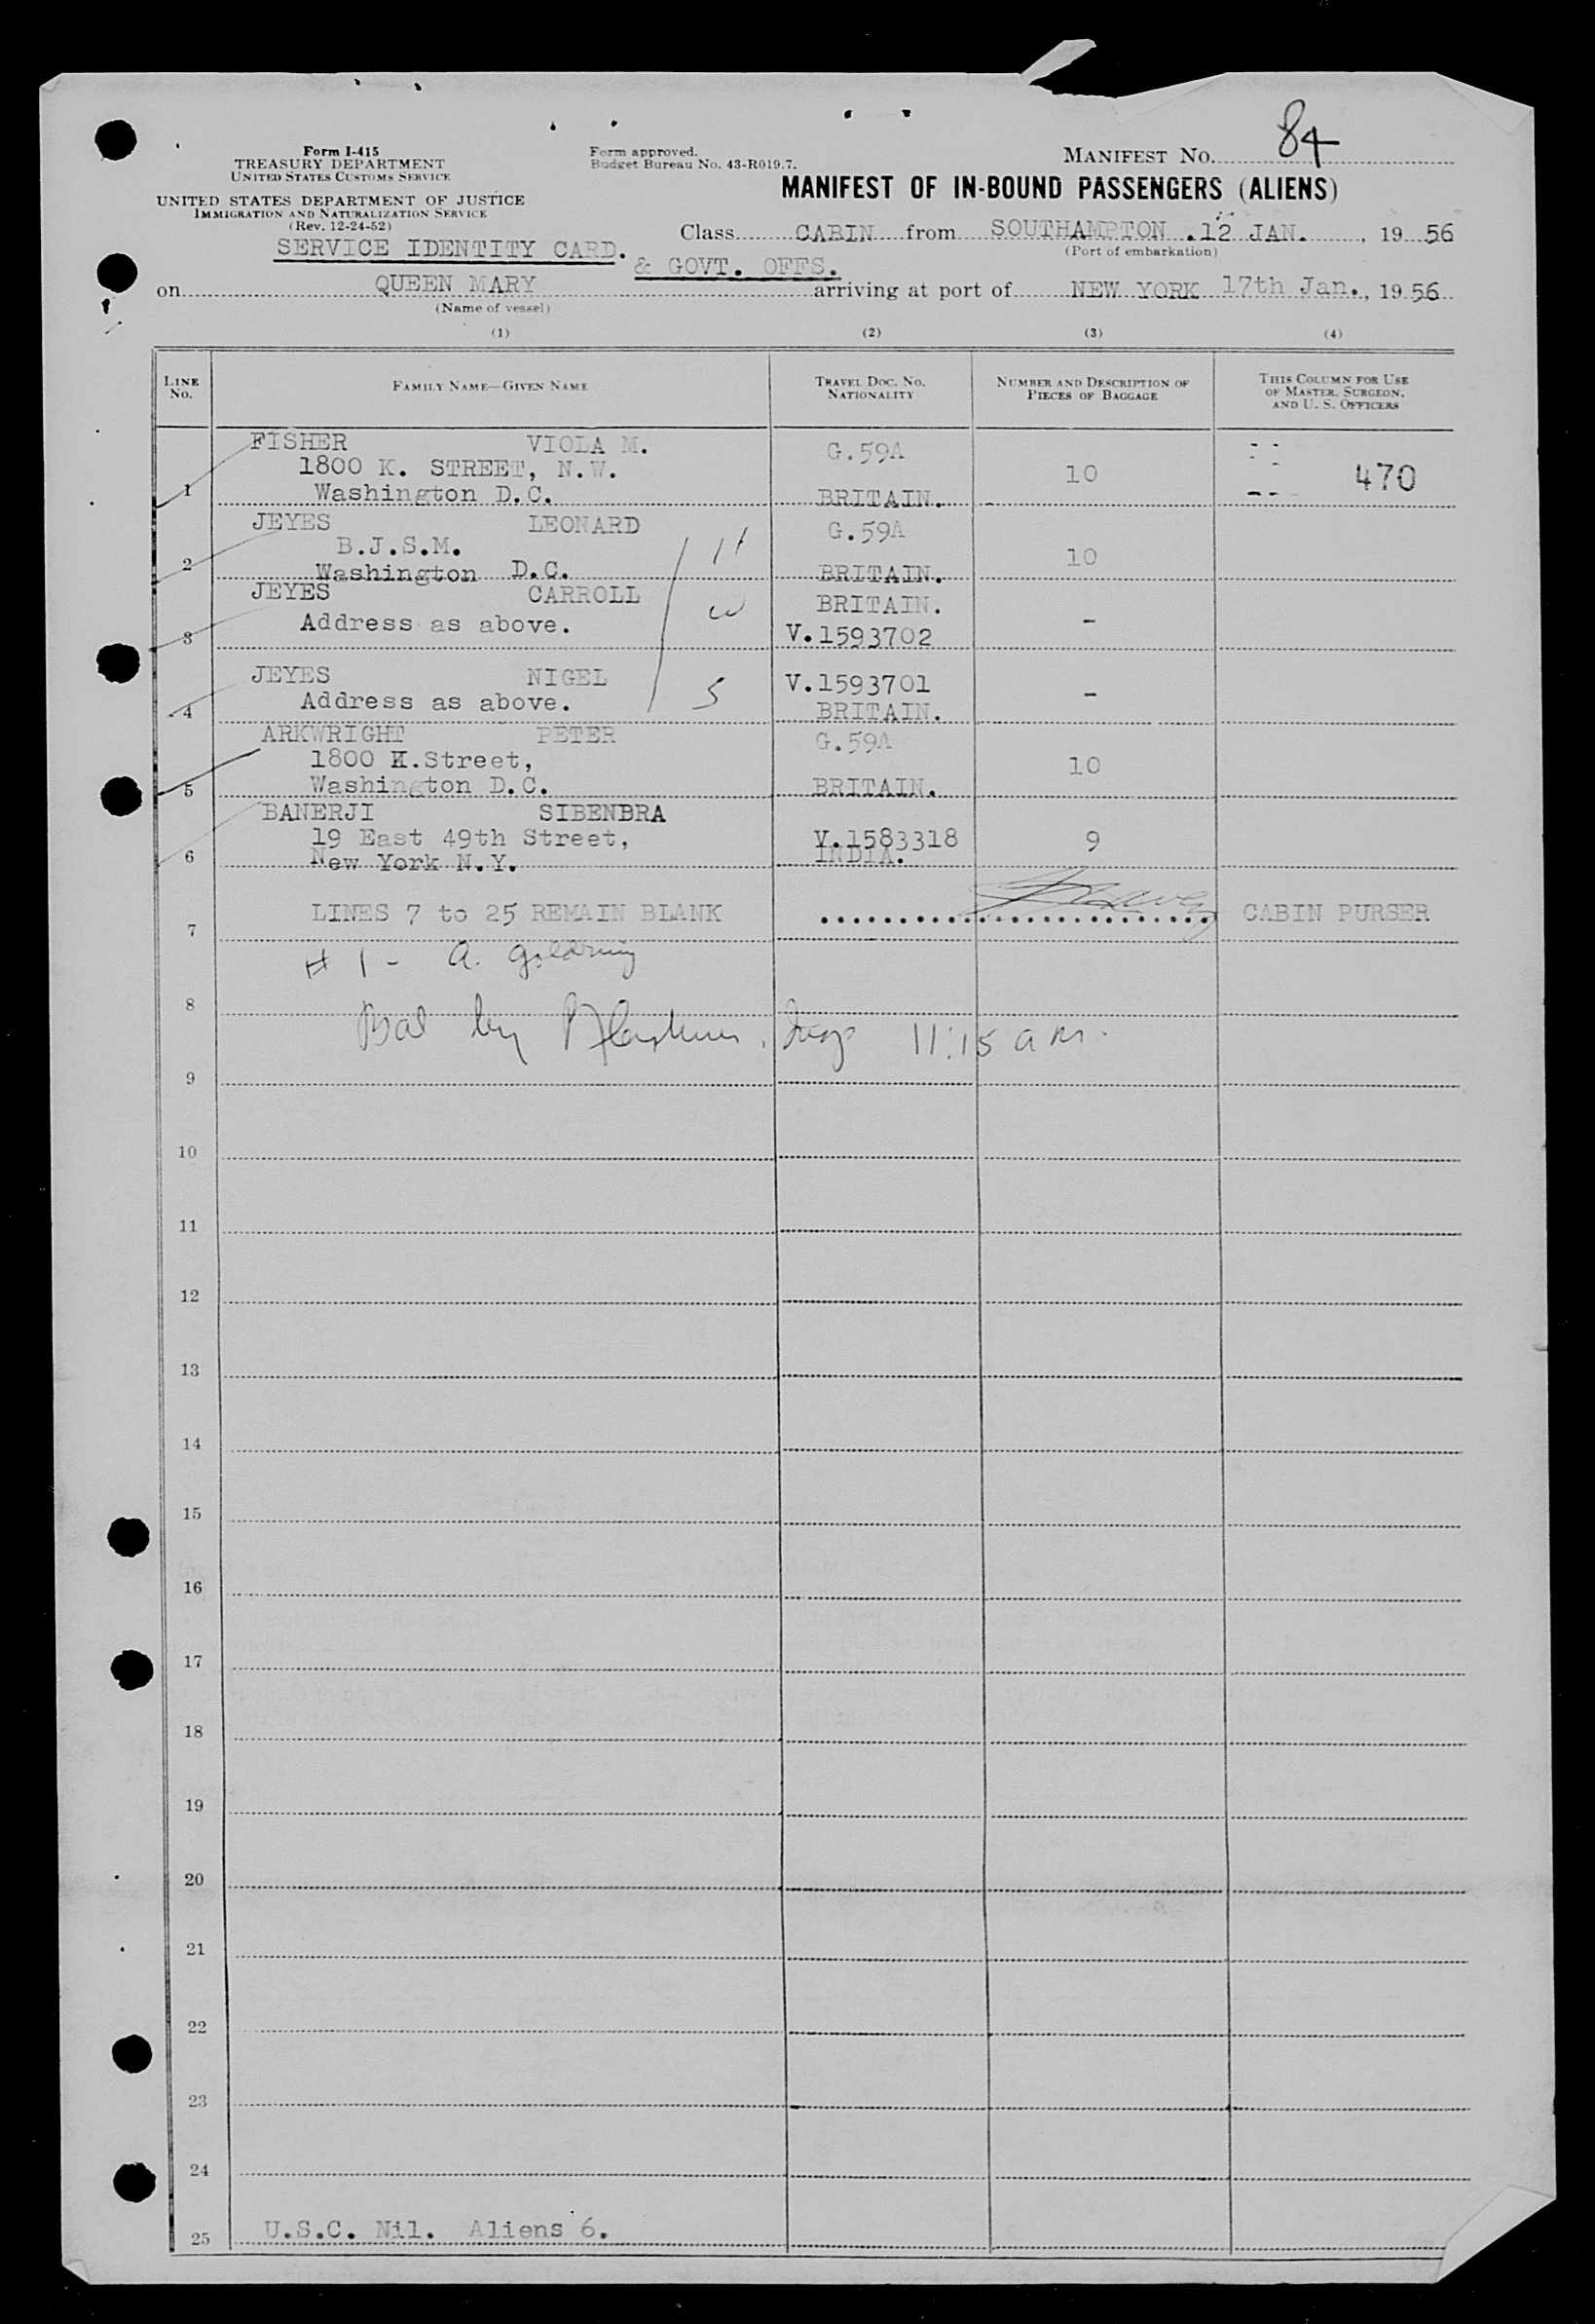 Form I-415
TREASURY DEPARTMENT
UNITED STATES CUSTOMS SERVICE
UNITED STATES DEPARTMENT OF JUSTICE
IMMIGRATION AND NATURALIZATION SERVICE
(Rev. 12-24-52)
Form approved.
Budget Bureau No. 43-R019.7.
MANIFEST NO. 84
MANIFEST OF IN-BOUND PASSENGERS (ALIENS)
Class CABIN from SOUTHAMPTON .12 JAN. , 19 56
(Port of embarkation)
SERVICE IDENTITY CARD.
& GOVT. OFFS.
on QUEEN MARY arriving at port of NEW YORK 17th Jan., 19 56
(Name of vessel)
(1) (2) (3) (4)
LINE NO. FAMILY NAME—GIVEN NAME TRAVEL DOC. NO. NATIONALITY NUMBER AND DESCRIPTION OF PIECES OF BAGGAGE THIS COLUMN FOR USE OF MASTER, SURGEON, AND U. S. OFFICERS
FISHER VIOLA M. G.59A
1800 K. STREET, N.W. 10 470
1 Washington D.C. BRITAIN.
JEYES LEONARD G.59A
B.J.S.M. 10
2 Washington D.C. BRITAIN.
JEYES CARROLL BRITAIN.
Address as above. W -
3 V.1593702
JEYES NIGEL V.1593701
Address as above. S -
4 BRITAIN.
ARKWRIGHT PETER G.59A
1800 K.Street, 10
5 Washington D.C. BRITAIN.
BANERJI SIBENBRA
19 East 49th Street, V.1583318 9
6 New York N.Y. INDIA.
LINES 7 to 25 REMAIN BLANK CABIN PURSER
7
# 1 - A. Goldring
8
Bal by Insp 11:15 am.
9
10
11
12
13
14
15
16
17
18
19
20
21
22
23
24
25 U.S.C. Nil. Aliens 6.